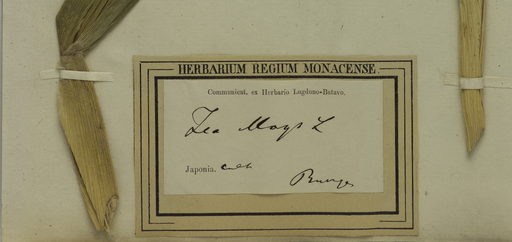 HERBARIUM REGIUM MONACENSE.
Communicat. ex Herbario Lugduno-Batavo.
Zea Mays L
Japonia. cult
Buerger